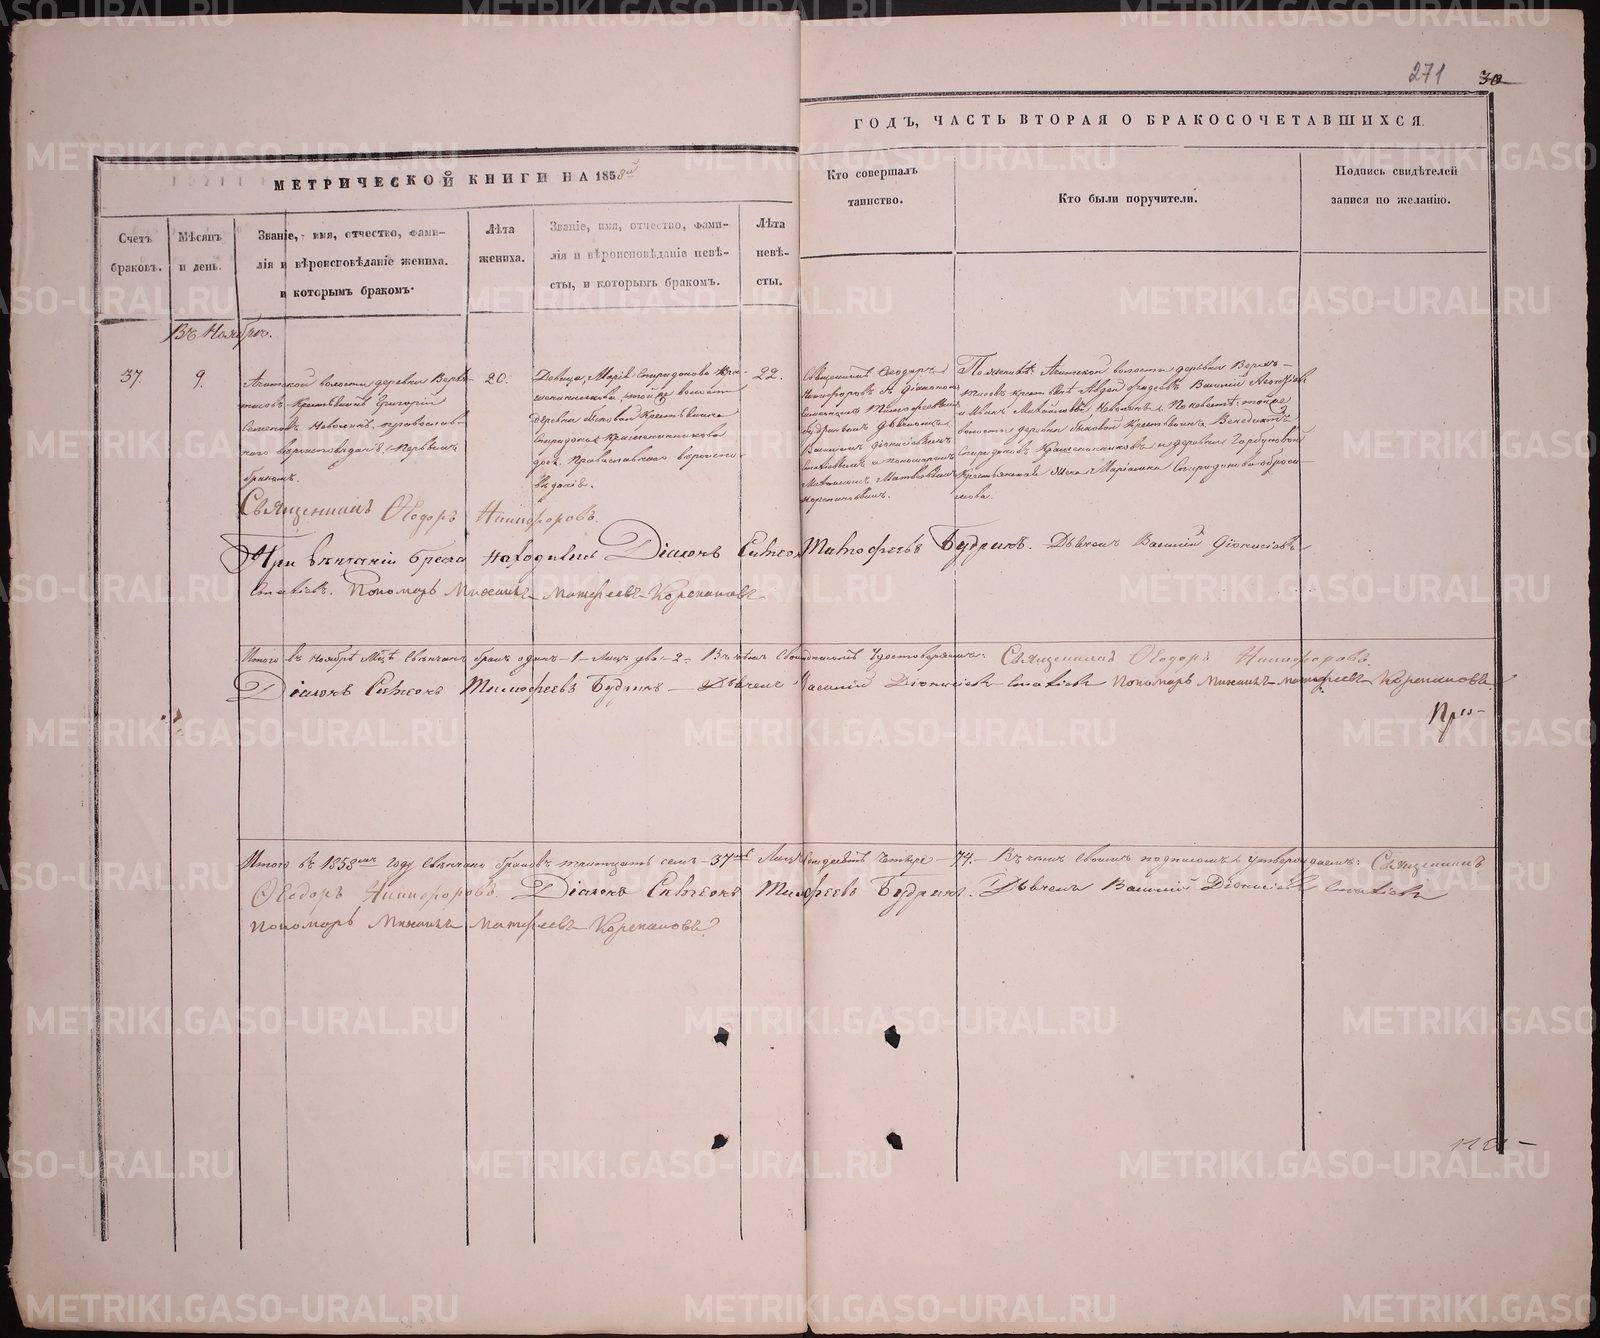 271 30
МЕТРИЧЕСКОЙ КНИГИ НА 1858й
ГОДЪ, ЧАСТЬ ВТОРАЯ О БРАКОСОЧЕТАВШИХСЯ.
Счетъ
браковъ.
Мѣсяцъ
и день.
Званіе, имя, отчество, фами-
лія и вѣроисповѣданіе жениха.
и которымъ бракомъ.
Лѣта
жениха.
Званіе, имя, отчество, фами-
лія и вѣроисповѣданіе невѣ-
сты, и которымъ бракомъ.
Лѣта
невѣ-
сты.
Кто совершалъ
таинство.
Кто были поручители.
Подпись свидѣтелей
записи по желанію.
Въ Ноябрѣ.
37.
9.
Ачитской волости деревни Верхъ-
тисовъ Крестьянинъ Григорій
Семеновъ Неволинъ, православ-
наго вѣроисповѣданія, первымъ
бракомъ.
20.
Девица, Марія Спиридонова Кра-
шенинникова, той же волости
деревни Быковой Крестьянина
Спиридона Крашенинникова
дочь, Православнаго вѣроиспо-
вѣданія.
22.
Священникъ Ѳеодоръ
Никифоровъ съ діакономъ
Симеономъ Тимофеевымъ
Будринымъ дьячкомъ
Василіемъ Діонисіевымъ
и пономаремъ
Михаиломъ Матвѣевымъ
Корепановымъ.
По женихѣ: Ачитской волости деревни Верхъ-
тисовъ крестьяне Авдей Василій
и Иванъ Михайловъ Неволины. По невѣстѣ: той же
волости деревни Быковой Крестьянинъ Венедиктъ
Спиридоновъ Крашенинниковъ и деревни Горбуновой
Крестьянская жена Маріамна Спиридонова
Священникъ Ѳеодоръ Никифоровъ.
При вѣнчаніи брака находились Діаконъ Симеонъ Тимофеевъ Будринъ. Дьячекъ Василій Діонисіевъ
Пономарь Михаилъ Матфеевъ Корепановъ
Итого въ ноябрѣ М-цѣ свѣнчанъ бракъ одинъ - 1 - Лицъ два - 2 - Въ чемъ Священникъ Ѳеодоръ Никифоровъ.
Діаконъ Симеонъ Тимофеевъ Будринъ - Дьячекъ Василій Діонисіевъ Пономарь Михаилъ Матфеевъ Корепановъ.
Итого въ 1858мъ году свѣнчано браковъ тритцать семь - 37мь Лицъ четыре 74. - Въ чемъ своимъ подписомъ утверждаемъ: Священникъ
Ѳеодоръ Никифоровъ. Діаконъ Симеонъ Тимофеевъ Будринъ. Дьячекъ Василій Діонисіевъ
Пономарь Михаилъ Матфеевъ Корепановъ
METRIKI.GASO-URAL.RU